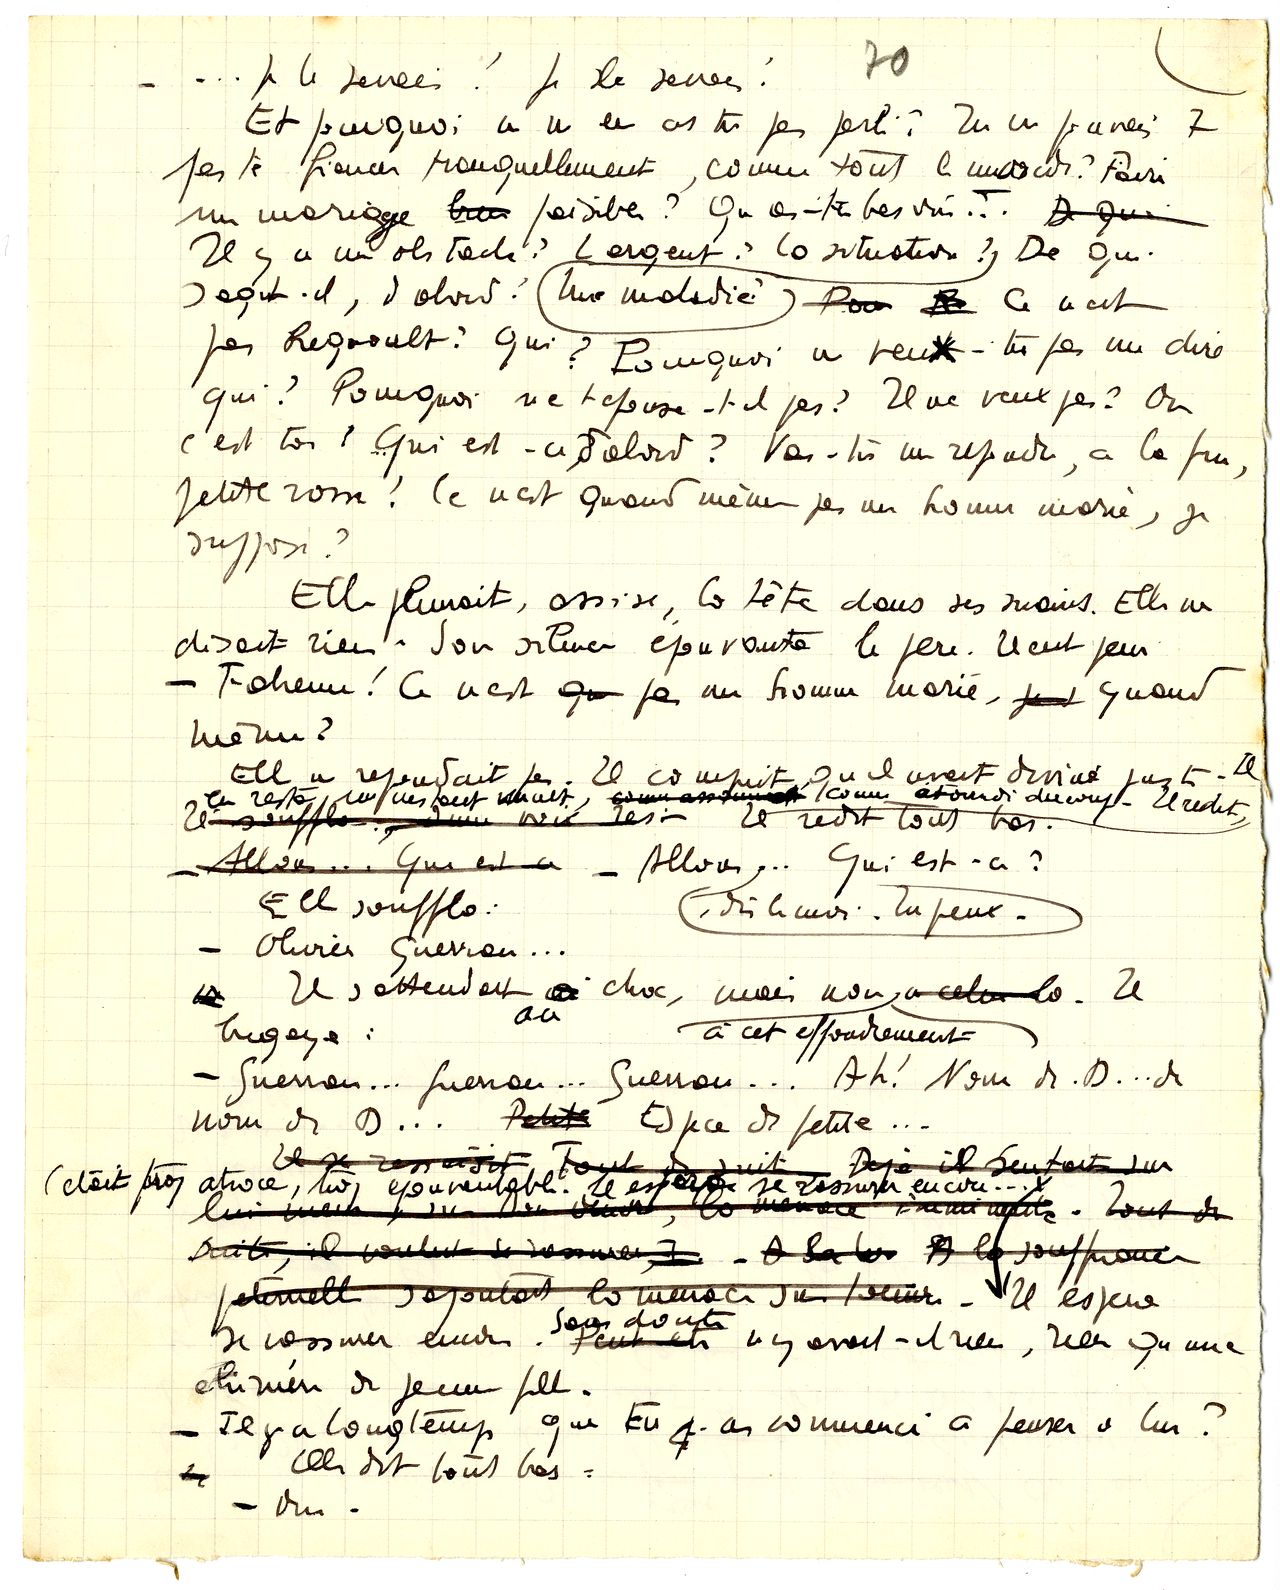 70
- ... je le savais ! Je le savais !
Et pourquoi n en as tu pas parlé ? Tu ne pouvais
pas te fiancer tranquillement, comme tout le monde ? Faire
un mariage bien paisible ? Qu as-tu besoin... De qui
Il y a un obstacle ? L argent ? la situation ? De qui
s agit-il, d abord ? (Une maladie ?) Pour Ce n est
pas Regnault ? Qui ? Pourquoi ne veux-tu pas me dire
qui ? Pourquoi ne t epouse-t-il pas ? Il ne veux pas ? Ou
c est toi ? Qui est-ce, d abord ? Vas-tu me repondre, a la fin,
petite rosse ! Ce n est quand même pas un homme marié, je
suppose ?
Elle pleurait, assise, la tête dans ses mains. Elle ne
disait rien. Son silence épouvanta le père. Il eut peur
- Fabienne ! Ce n est pas un homme marié, quand
même ?
Elle ne repondait pas. Il comprit qu il avait deviné juste. Il
en resta un instant muet, comme assommé, comme etourdi du coup. Il redit,
Il souffla, d une voix Il redit tout bas.
- Allons... Qui est ce - Allons... Qui est-ce ?
Elle souffla : (, dis le moi. Tu peux.
- Olivier Guerran...
Il s attendait au choc, mais non a celui la. Il
au à cet effondrement
begaya :
- Guerran... Guerran... Guerran... Ah ! Nom de D... de
nom de D... Petite Espece de petite...
Il se ressaisit Tout de suite Déjà il sentait sur
(C était trop atroce, trop epouvantable. Il espera se rassurer encore...
lui meme, sur la menace imminente. Tout de
suite, il voulut se rassurer, A la A la souffrance
paternelle s ajoutait la menace sur . Il espera
se rassurer encore. Sans doute Peut etre n y avait-il rien, rien qu une
chimère de jeune fille.
- Il y a longtemps que tu as commencé a penser a lui ?
Elle dit tout bas :
- Oui.